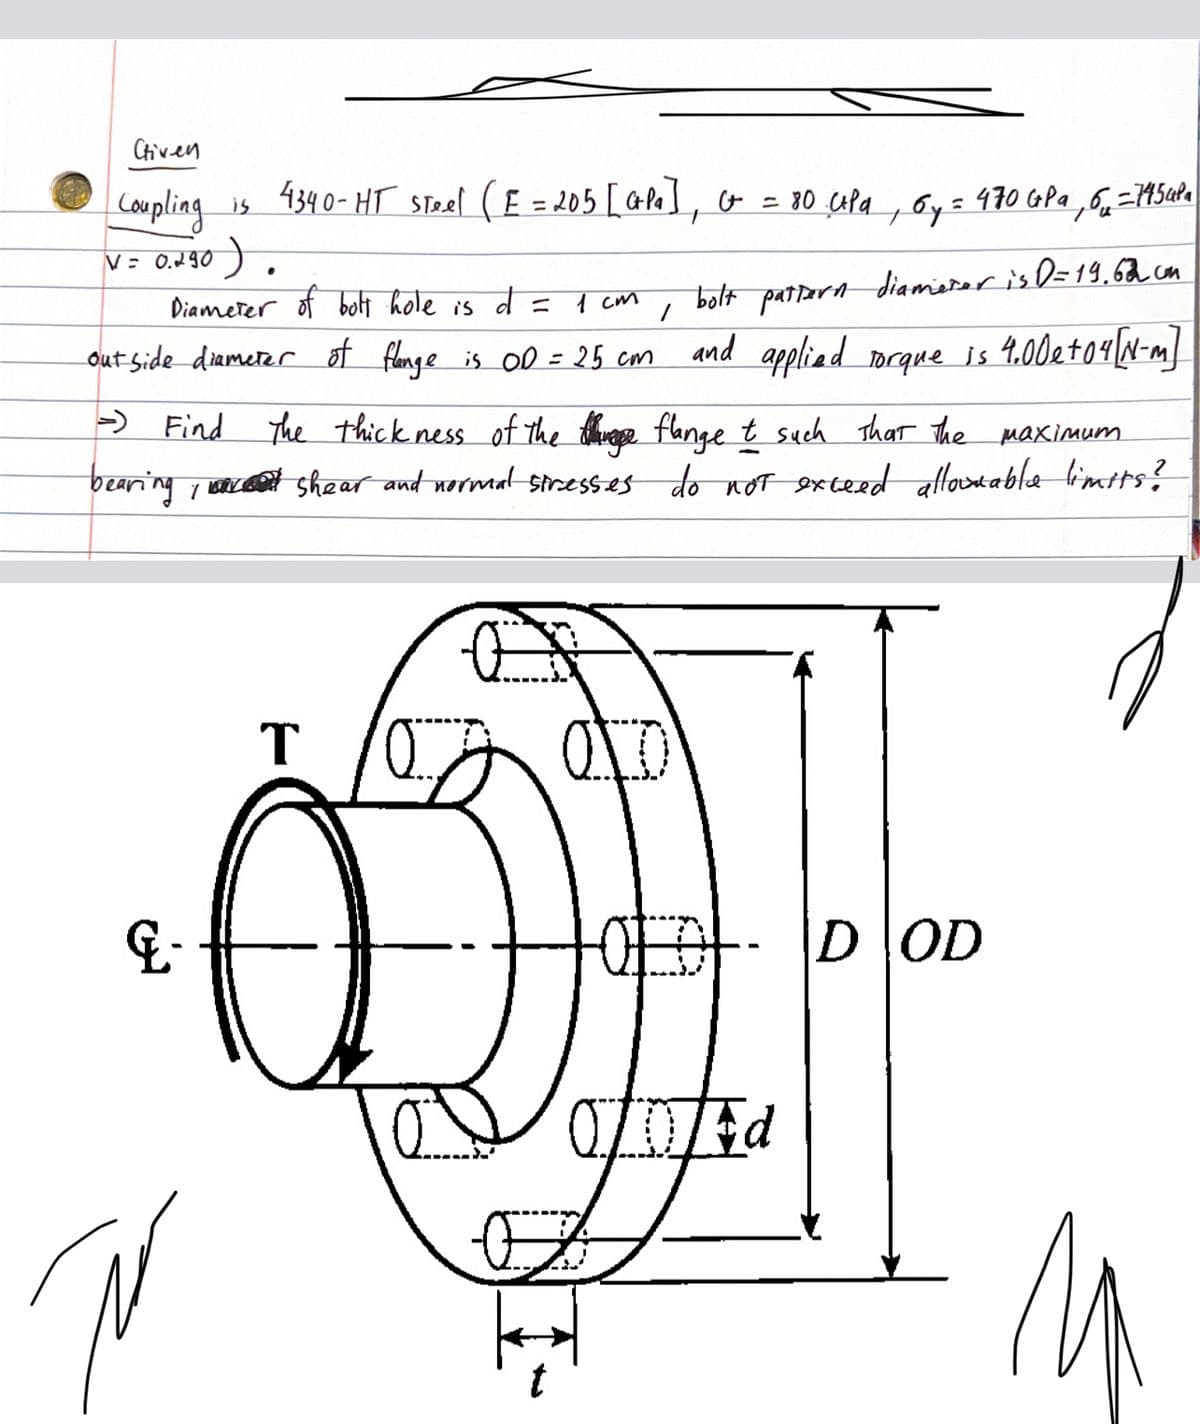 Given
Coupling is 4340-HT steel ( E = 205 [ GPa ] , G = 80 GPa , σy = 470 GPa , σu = 745 GPa
ν = 0.290 ) .
Diameter of bolt hole is d = 1 cm , bolt pattern diameter is D = 19.62 cm
outside diameter of flange is OD = 25 cm and applied torque is 4.00e+04 [N-m]
⇒ Find The thickness of the flange t such that the maximum
bearing , shear and normal stresses do not exceed allowable limits?
T
℄
D OD
d
t